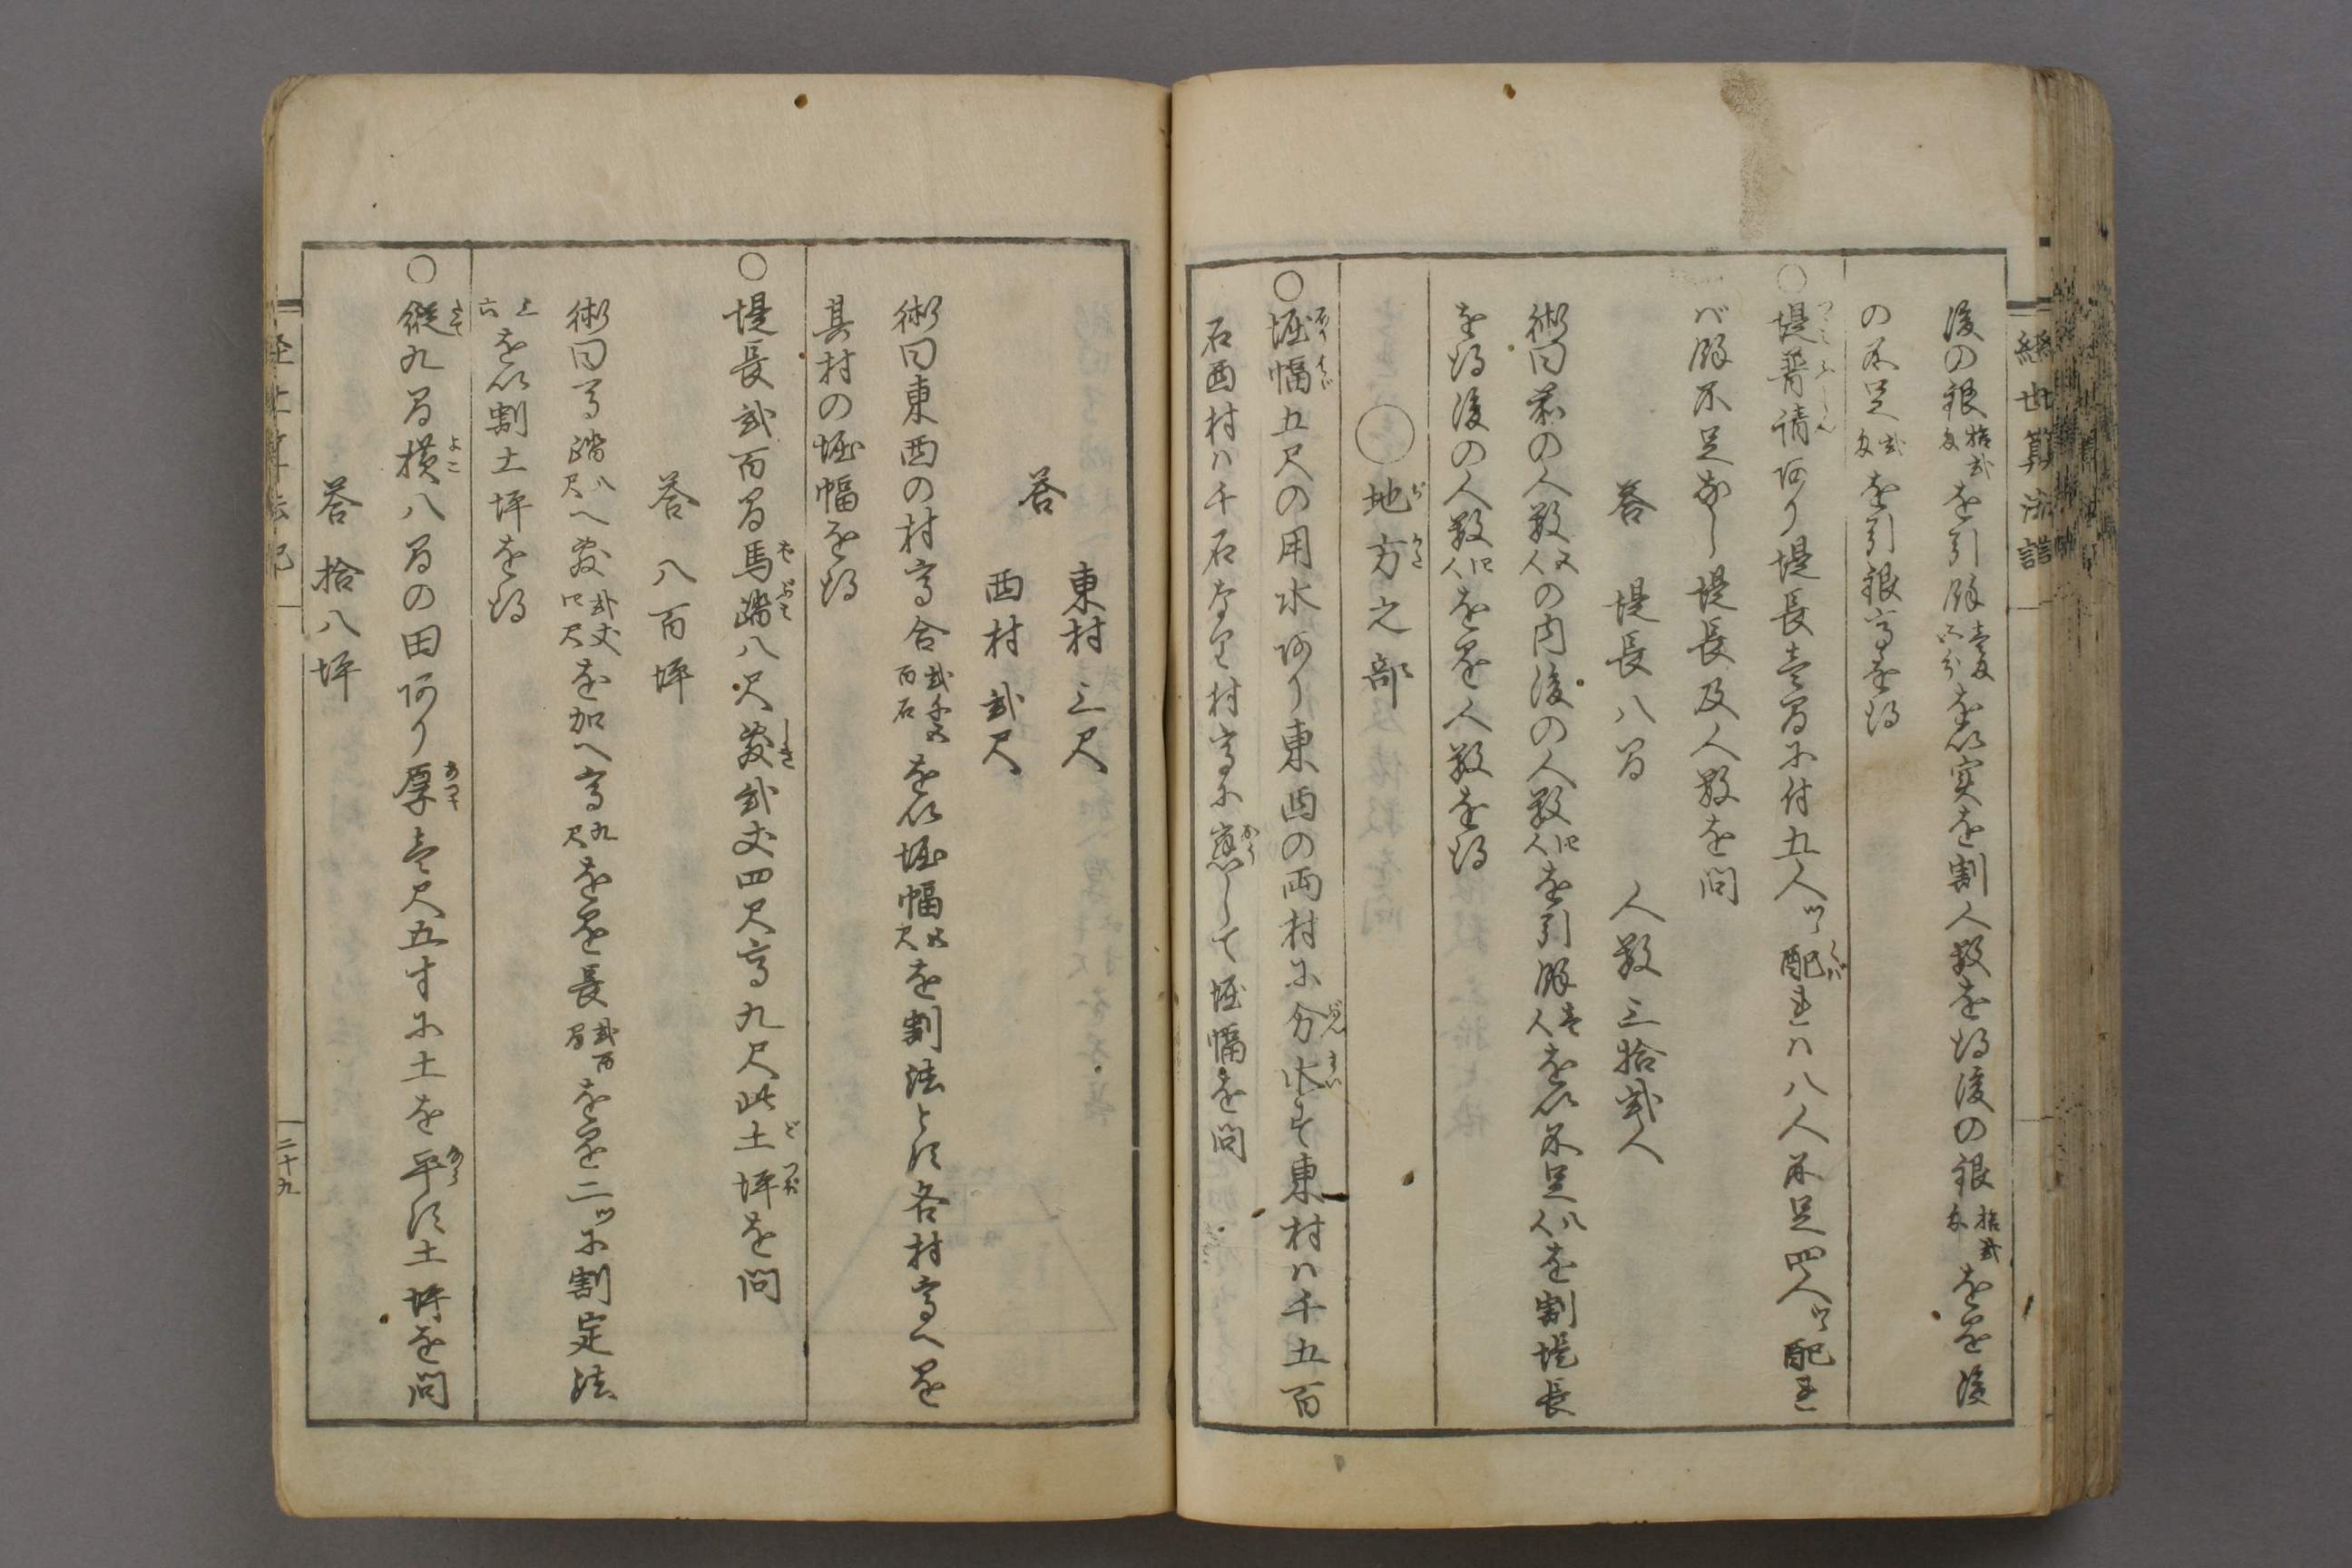 後の銀拾弐匁を引餘壱匁五分を以実を割人数を得後の銀拾弐匁を乗後
の不足弐匁を引銀高を得
○堤普請阿り堤長壱間に付五人ツヽ配れハ八人不足四人ツヽ配れ
バ餘不足なし堤長及人数を問
答 堤長八間 人数三拾弐人
術曰前の人数五人の内後の人数四人を引餘壱人を以不足八人を割堤長
を得後の人数四人を乗人数を得
○地方之部
○堀幅五尺の用水阿り東西の両村に分水す東村ハ千五百
石西村ハ千石なり村高に応して堀幅を問
経世算法諺
答 東村三尺
西村弐尺
術曰東西の村高合弐千五百石を以堀幅五尺を割法とし各村高へ乗
其村の堀幅を得
○堤長弐百間馬踏八尺敷弐丈四尺高九尺此土坪を問
答 八百坪
術曰馬踏八尺へ敷弐丈四尺を加へ高九尺を乗長弐百間を乗二ツに割定法
三六を以割土坪を得
○縦九間横八間の田阿り厚壱尺五寸に土を平し土坪を問
答 拾八坪
二十九